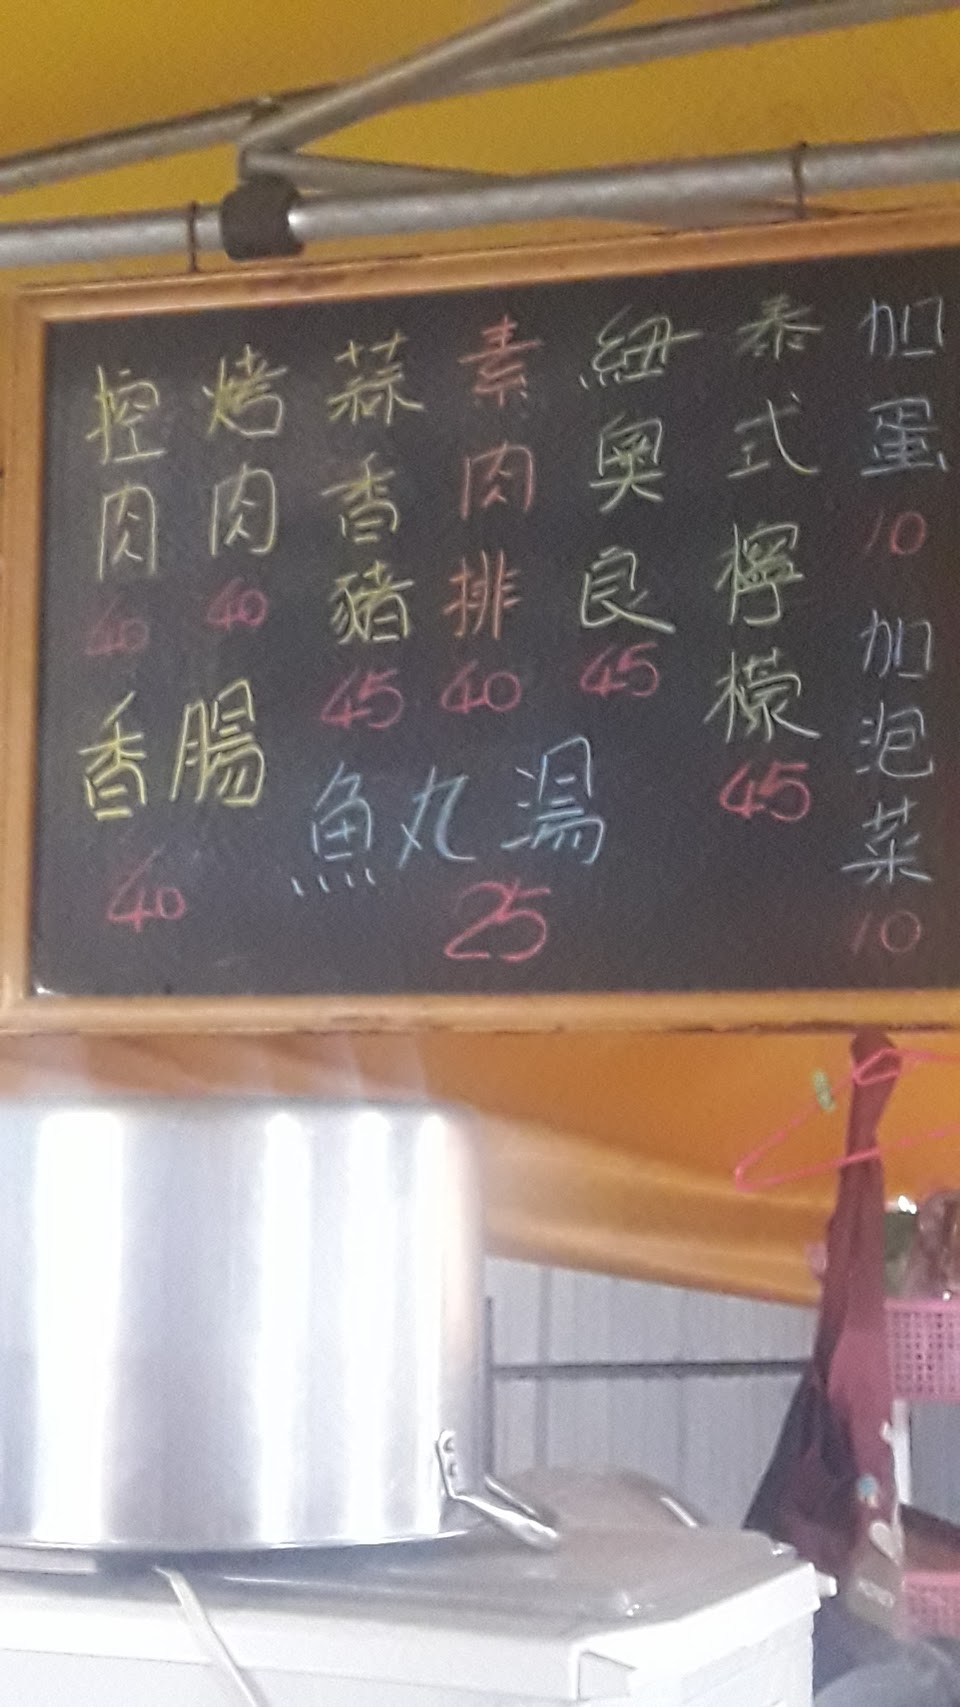 加蛋
10
加泡菜
10
泰式檸檬
45
紐奧良
45
素肉排
40
蒜香豬
45
烤肉
40
控肉
40
魚丸湯
25
香腸
40